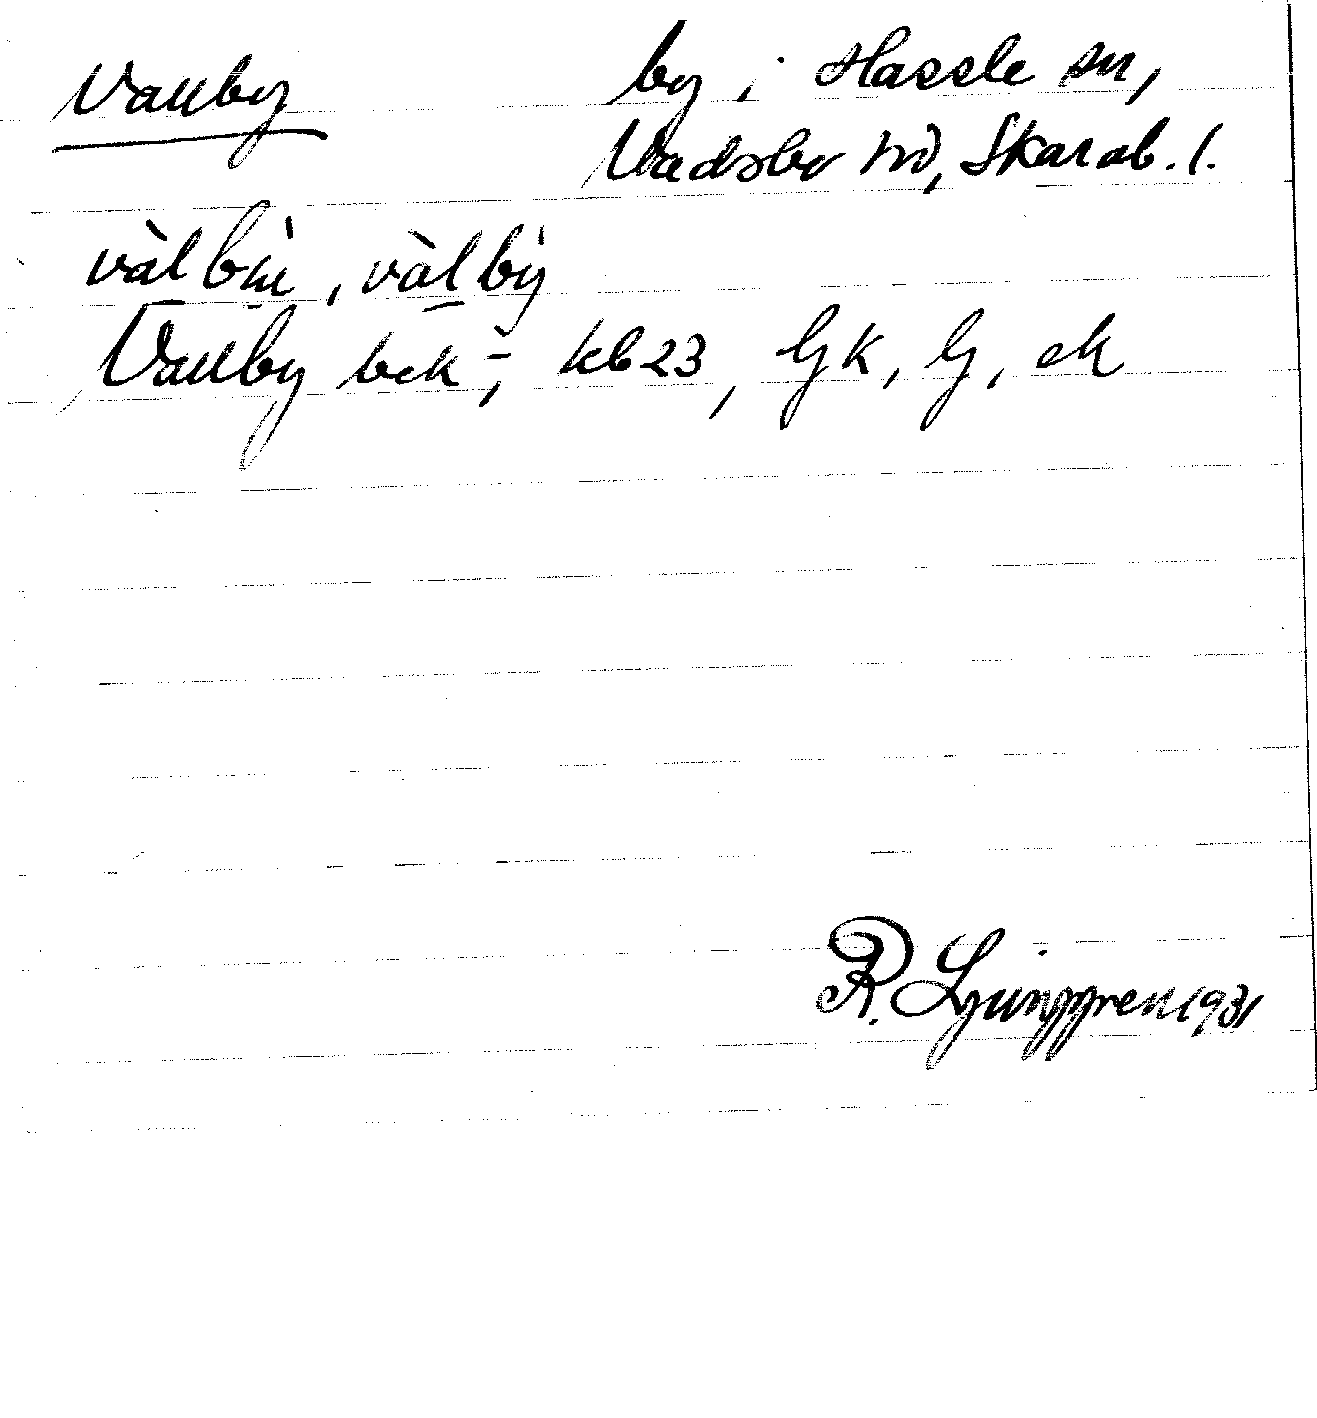 Vallby by i Hassle sn,
Vadsbo hd, Skarab. l.
vàlbỳ, vàlbý
Vallby bek -, kb 23, Gk, G, ek
R. Ljunggren 1931